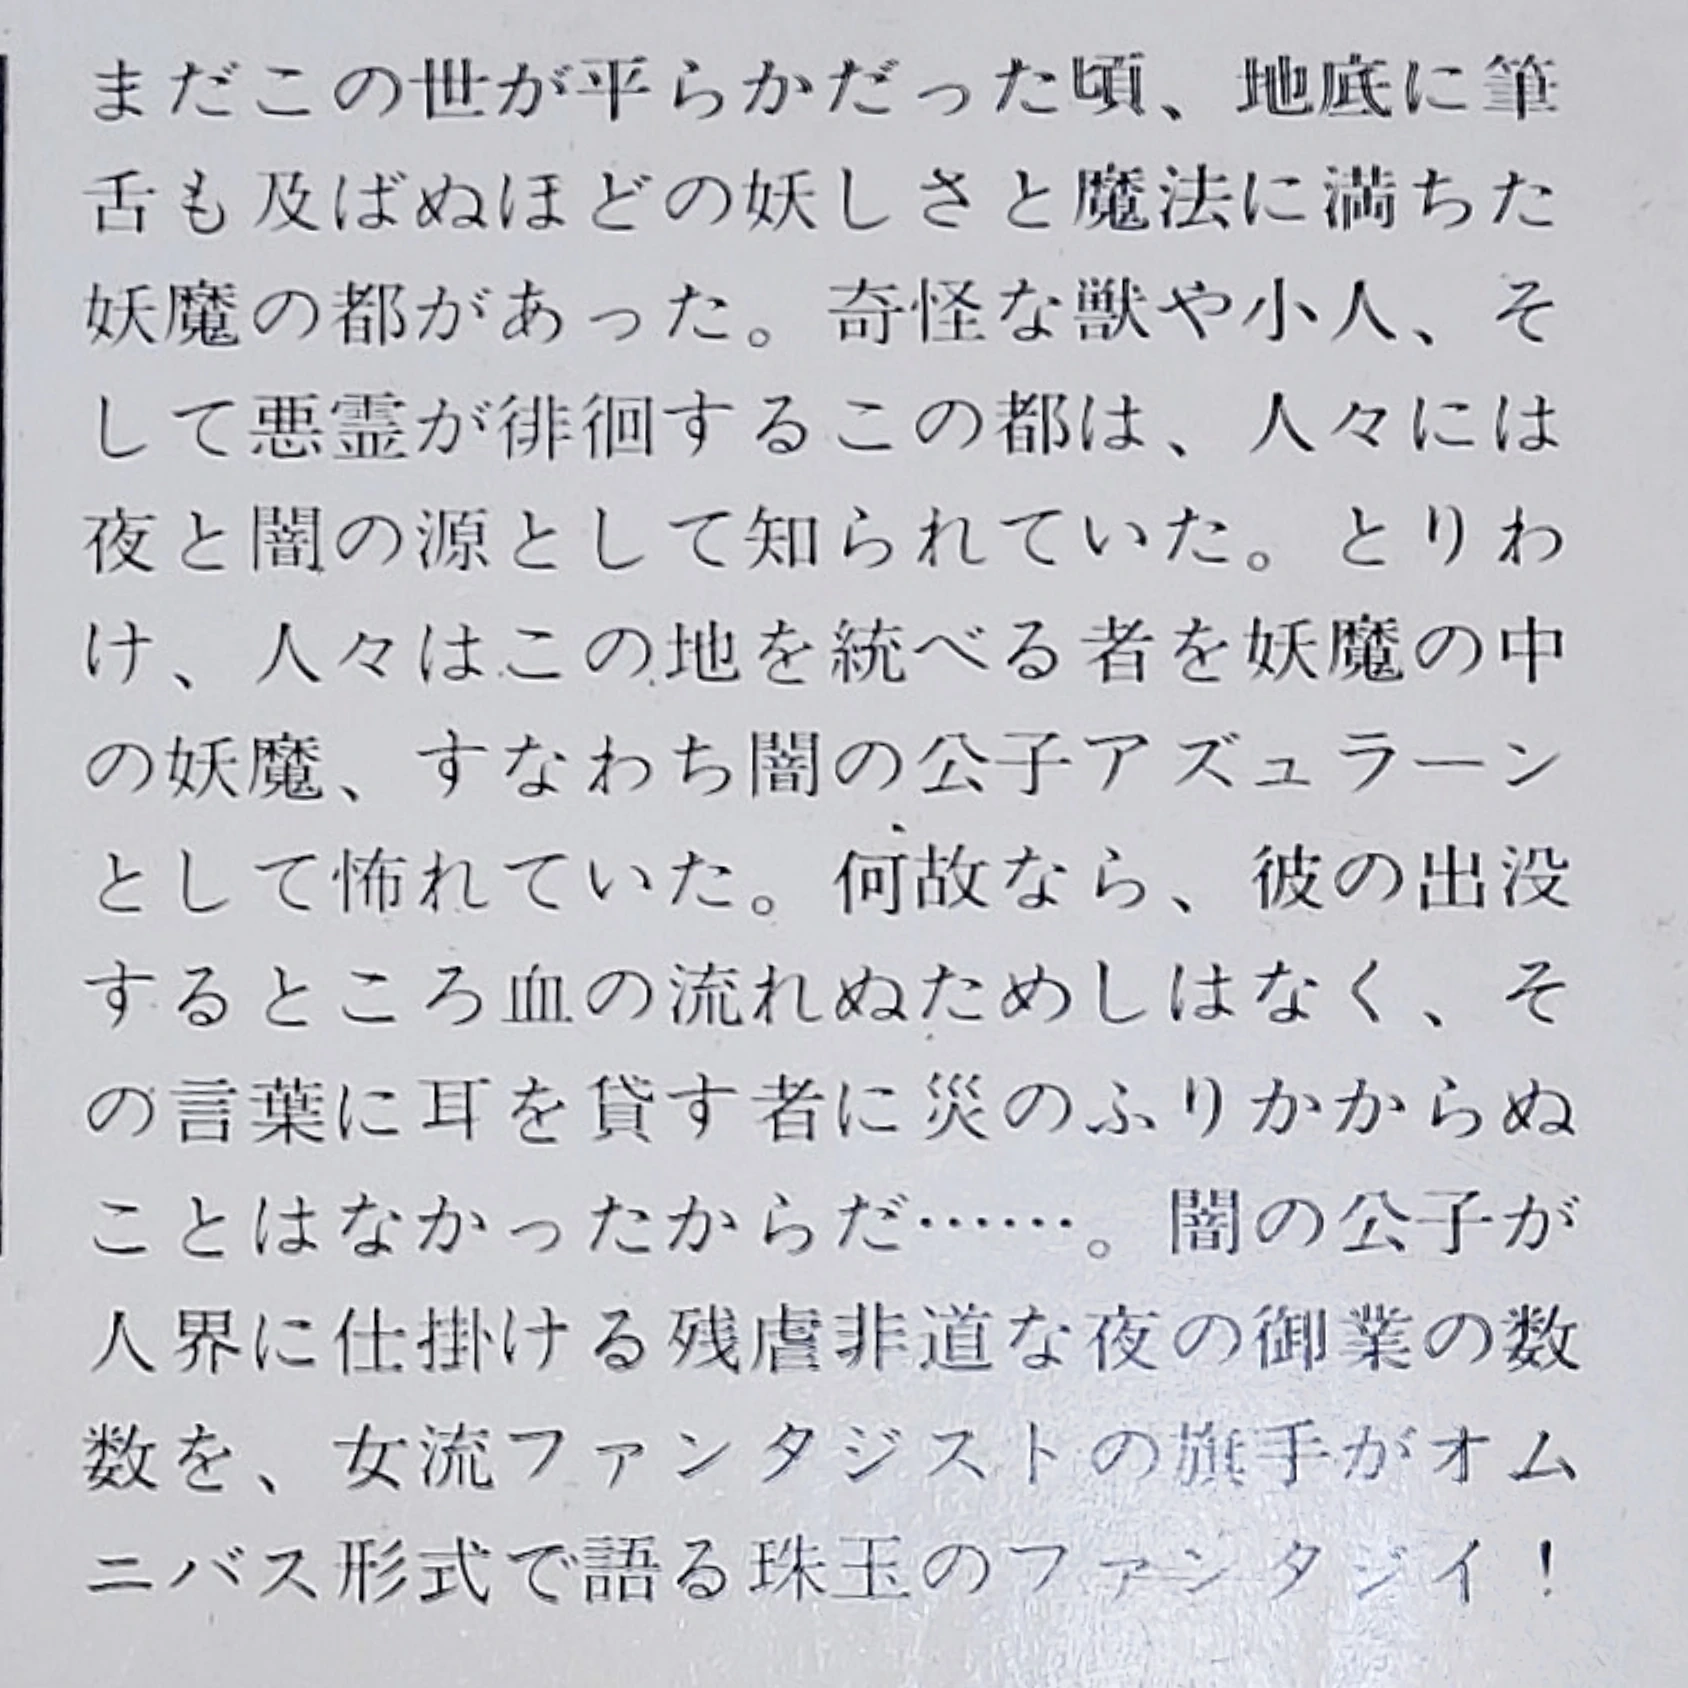 まだこの世が平らかだった頃、地底に筆
舌も及ばぬほどの妖しさと魔法に満ちた
妖魔の都があった。奇怪な獣や小人、そ
して悪霊が徘徊するこの都は、人々には
夜と闇の源として知られていた。とりわ
け、人々はこの地を統べる者を妖魔の中
の妖魔、すなわち闇の公子アズュラーン
として怖れていた。何故なら、彼の出没
するところ血の流れぬためしはなく、そ
の言葉に耳を貸す者に災のふりかからぬ
ことはなかったからだ……。闇の公子が
人界に仕掛ける残虐非道な夜の御業の数
数を、女流ファンタジストの旗手がオム
ニバス形式で語る珠玉のファンタジイ！